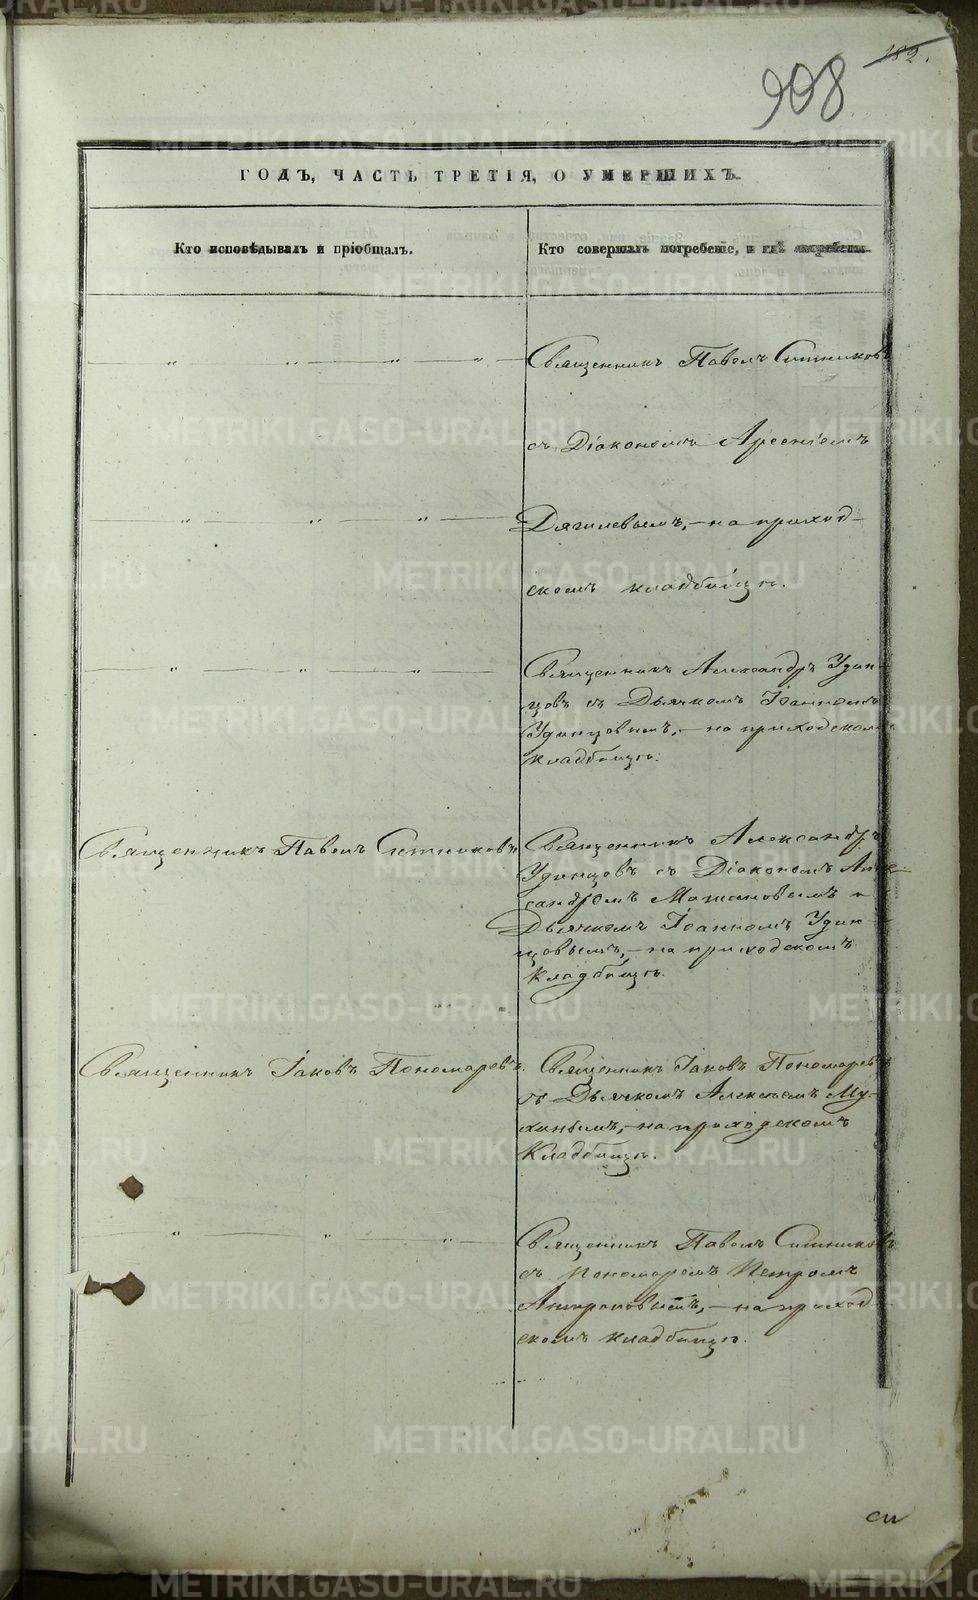 182.
908
ГОДЪ, ЧАСТЬ ТРЕТІЯ, О УМЕРШИХЪ.
Кто исповѣдывалъ и пріобщалъ.
Кто совершалъ погребеніе, и гдѣ погребены.
Священникъ Павелъ Ситниковъ
съ Діакономъ Арсеніемъ
Дягилевымъ, - на приход-
скомъ кладбищѣ.
Священникъ Александръ Удин-
цовъ съ Дьячкомъ Іоанномъ
Удинцовымъ, - на приходскомъ
кладбищѣ.
Священникъ Павелъ Ситниковъ
Священникъ Александръ
Удинцовъ съ Діакономъ Алек-
сандромъ Мажановымъ и
Дьячкомъ Іоанномъ Удин-
цовымъ, - на приходскомъ
Кладбищѣ.
Священникъ Іаковъ Пономаревъ.
Священникъ Іаковъ Пономаревъ
съ Дьячкомъ Алексѣемъ Му-
хинымъ, - на приходскомъ
Кладбищѣ.
Священникъ Павелъ Ситниковъ
съ Пономаремъ Петромъ
Антроповымъ, - на приход-
скомъ кладбищѣ.
си
METRIKI.GASO-URAL.RU